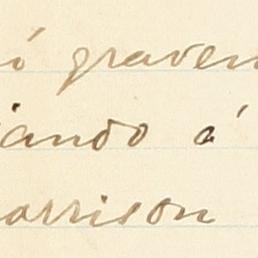 ó graven
iando á
arrison